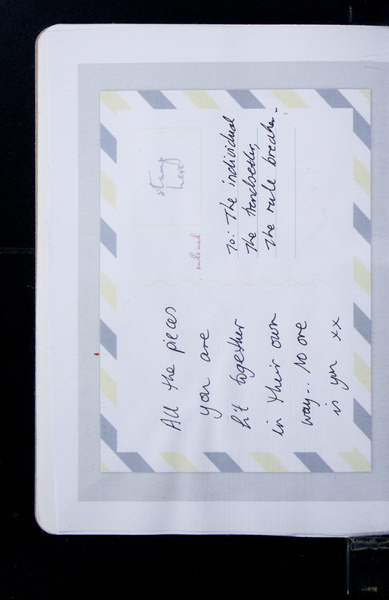 All the pieces
you are
fit together
in their own
way.. No one
is you xx
stamp
here
To: The individual
the trendsetter,
the rule breaker.